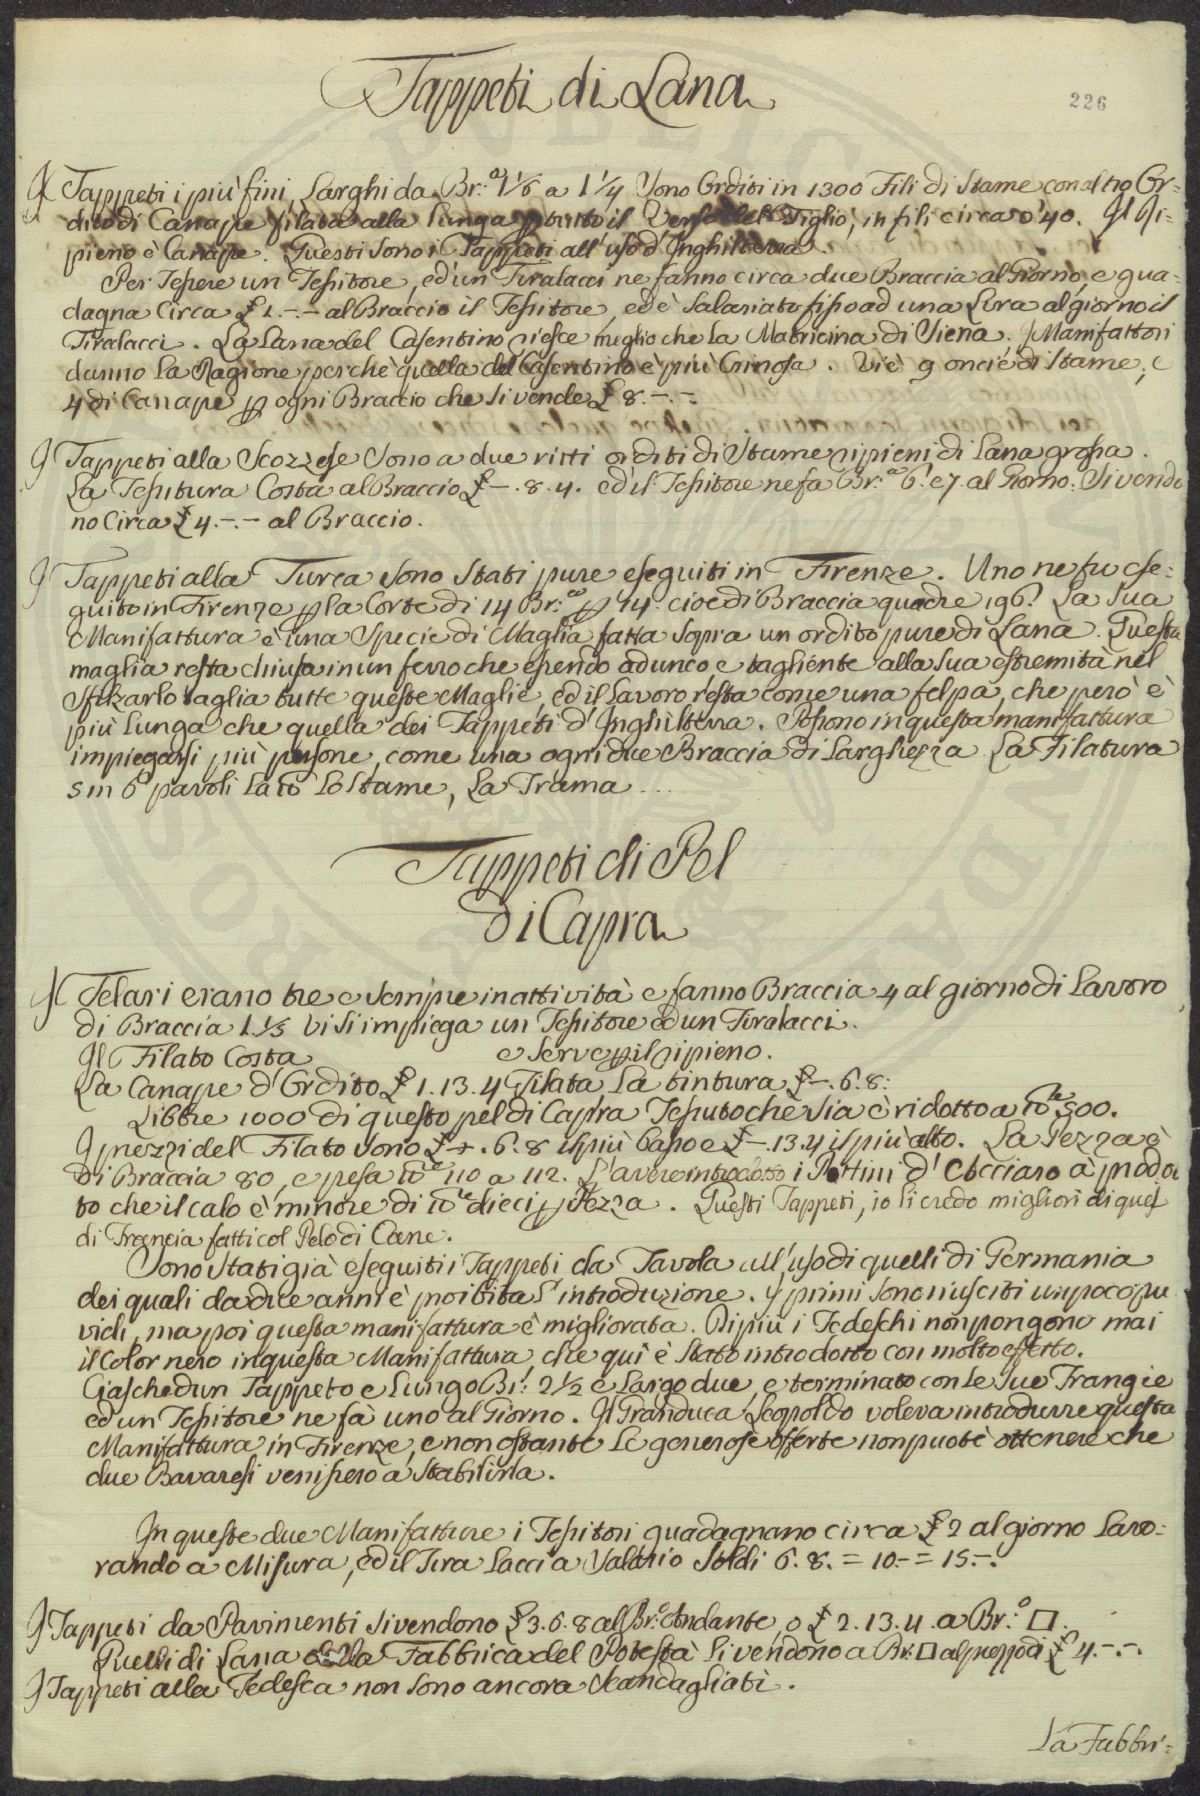 Tappeti di Lana
226
I Tappeti i più fini, Larghi da Br.ª 1⅙ a 1¼ Sono Orditi in 1300 Fili di Stame con altro Or-
dito di Canape filata alla lunga p tutto il Verso del Tiglio, in fili circa 040. Il Ri-
pieno è Canape. Questi Sono i Tappeti all'uso d'Inghilterra.
Per Tessere un Tessitore, ed un Tiralacci ne fanno circa due Braccia al Giorno, e gua-
dagna Circa £ 1.-.- al Braccio il Tessitore, ed è Salariato fisso ad una Lira al giorno il
Tiralacci. La Lana del Casentino riesce meglio che La Matricina di Siena. I Manifattori
danno La Ragione perchè quella del Casentino è più Crinosa. Vi è 9 oncie di Stame, e
4 di Canape p ogni Braccio che si vende £ 8.-.-
I Tappeti alla Scozzese Sono a due ritti orditi di Stame ripieni di Lana grossa.
La Tessitura Costa al Braccio £ -.8.4. ed il Tessitore ne fa Br.ª 6. e 7. al Giorno. Si vendo
no Circa £ 4.-.- al Braccio.
I Tappeti alla Turca Sono Stati pure eseguiti in Firenze. Uno ne fu ese-
guito in Firenze p la Corte di 14 Br.ª p 14. cioè di Braccia quadre 196. La Sua
Manifattura è una Specie di Maglia fatta Sopra un ordito pure di Lana. Questa
maglia resta chiusa in un ferro che essendo adunco, e tagliente alla sua estremità nel
Sfilzarlo taglia tutte queste Maglie, ed il Lavoro resta come una felpa, che però è
più Lunga che quella dei Tappeti d'Inghilterra. Possono in questa manifattura
impiegarsi più persone, come una ogni due Braccia di Larghezza. La Filatura
5 in 6 pavoli la lb Lo Stame, La Trama ...
Tappeti di Pel
di Capra
I Telari erano tre e Sempre in attività e fanno Braccia 4 al giorno di Lavoro
di Braccia 1⅓ Vi si impiega un Tessitore ed un Tiralacci.
Il Filato Costa e Serve p il ripieno.
La Canape d'Ordito £ 1.13.4 Filata La tintura £ -.6.8.
Libbre 1000 di questo pel di Capra Tessuto che Sia è ridotto a lb.e 500.
I prezzi del Filato Sono £ -.6.8 il più basso e £ -.13.4 il più alto. La Pezza è
di Braccia 80, e pesa lb.e 110 a 112. L'avere introdotto i Pettini d'Acciaro à prodot
to che il calo è minore di lb.e dieci p Pezza. Questi Tappeti, io li credo migliori di quei
di Francia fatti col Pelo di Cane.
Sono Stati già eseguiti i Tappeti da Tavola all'uso di quelli di Germania
dei quali da due anni è proibita l'introduzione. I primi Sono riusciti un poco ru
vidi, ma poi questa manifattura è migliorata. Di più i Tedeschi non pongono mai
il Color nero in questa Manifattura, che quì è Stato introdotto con molto effetto.
Ciaschedun Tappeto e Lungo Br: 2½ e Largo due, e terminato con Le Sue Frangie
ed un Tessitore ne fà uno al Giorno. Il Granduca Leopoldo voleva introdurre questa
Manifattura in Firenze, e non ostante Le generose offerte non puotè ottenere che
due Bavaresi venissero a Stabilirla.
In queste due Manifatture i Tessitori guadagnano circa £ 2 al giorno Lavo-
rando a Misura, ed il Tira Lacci a Salario Soldi 6.8. = 10.- = 15.-.
I Tappeti da Pavimenti Si vendono £ 3.6.8 al Br.º Andante, o £ 2.13.4. a Br.º □.
Quelli di Lana della Fabbrica del Potestà Si vendono a Br. □ al prezzo di £ 4.-.-.
I Tappeti alla Tedesca non Sono ancora Scandagliati.
La Fabbri-